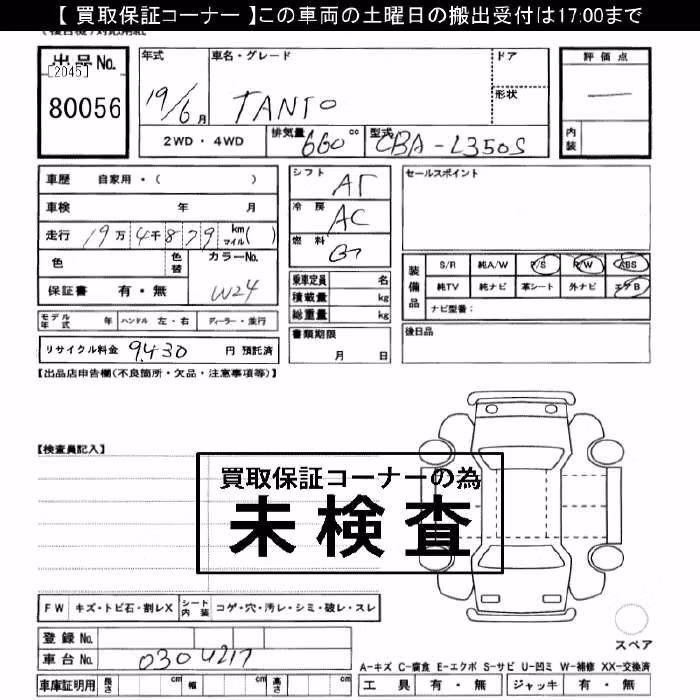 【 買取保証コーナー 】この車両の土曜日の搬出受付は17:00まで
出品No.
[2045]
80056
年式
19/6月
車名・グレード
TANTO
ドア
形状
評価点
内装
2WD・4WD
排気量 660 cc
型式 CBA-L350S
車歴 自家用・( )
車検 年 月
走行 19万4千879 km マイル( )
色
色替
カラーNo.
W24
保証書 有・無
シフト AT
冷房 AC
燃料
乗車定員 名
積載量 kg
総重量 kg
セールスポイント
装備品
S/R 純A/W P/S P/W ABS
純TV 純ナビ 革シート 外ナビ エアB
ナビ型番:
モデル年式 年 ハンドル 左・右 ディーラー・並行
リサイクル料金 9,430 円 預託済
書類期限
月 日
後日品
【出品店申告欄(不良箇所・欠品・注意事項等)】
【検査員記入】
買取保証コーナーの為
未検査
FW キズ・トビ石・割レX シート内装 コゲ・穴・汚レ・シミ・破レ・スレ
登録No.
車台No. 0304217
車庫証明用 長さ cm 幅 cm 高さ cm
スペア
A-キズ C-腐食 E-エクボ S-サビ U-凹ミ W-補修 XX-交換済
工具 有・無 ジャッキ 有・無